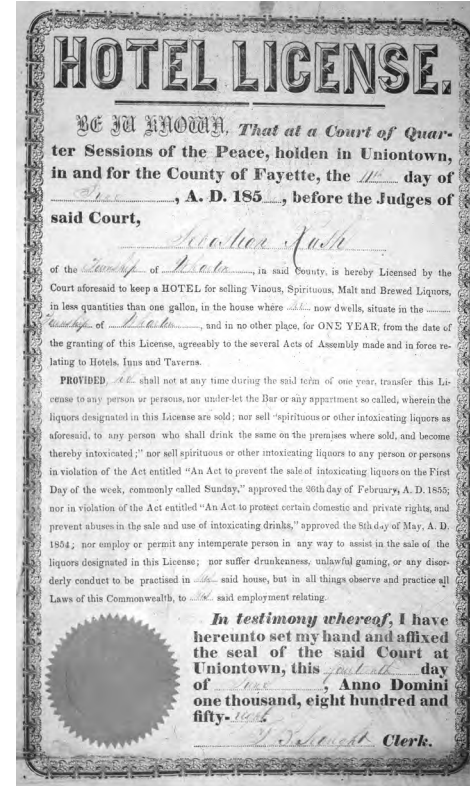 HOTEL LICENSE.
BE IT KNOWN, That at a Court of Quar-
ter Sessions of the Peace, holden in Uniontown,
in and for the County of Fayette, the 11th day of
June, A. D. 185, before the Judges of
said Court,
Sebastian Rush
of the Township of Wharton, in said County, is hereby Licensed by the
Court aforesaid to keep a HOTEL for selling Vinous, Spirituous, Malt and Brewed Liquors,
in less quantities than one gallon, in the house where he now dwells, situate in the
Township of Wharton, and in no other place, for ONE YEAR, from the date of
the granting of this License, agreeably to the several Acts of Assembly made and in force re-
lating to Hotels, Inns and Taverns.
PROVIDED, he shall not at any time during the said term of one year, transfer this Li-
cense to any person or persons, nor under-let the Bar or any appartment so called, wherein the
liquors designated in this License are sold; nor sell "spirituous or other intoxicating liquors as
aforesaid, to any person who shall drink the same on the premises where sold, and become
thereby intoxicated;" nor sell spirituous or other intoxicating liquors to any person or persons
in violation of the Act entitled "An Act to prevent the sale of intoxicating liquors on the First
Day of the week, commonly called Sunday," approved the 26th day of February, A. D. 1855;
nor in violation of the Act entitled "An Act to protect certain domestic and private rights, and
prevent abuses in the sale and use of intoxicating drinks," approved the 8th day of May, A. D.
1854; nor employ or permit any intemperate person in any way to assist in the sale of the
liquors designated in this License; nor suffer drunkenness, unlawful gaming, or any disor-
derly conduct to be practised in his said house, but in all things observe and practice all
Laws of this Commonwealth, to his said employment relating.
In testimony whereof, I have
hereunto set my hand and affixed
the seal of the said Court at
Uniontown, this fourteenth day
of June, Anno Domini
one thousand, eight hundred and
fifty-eight
Clerk.